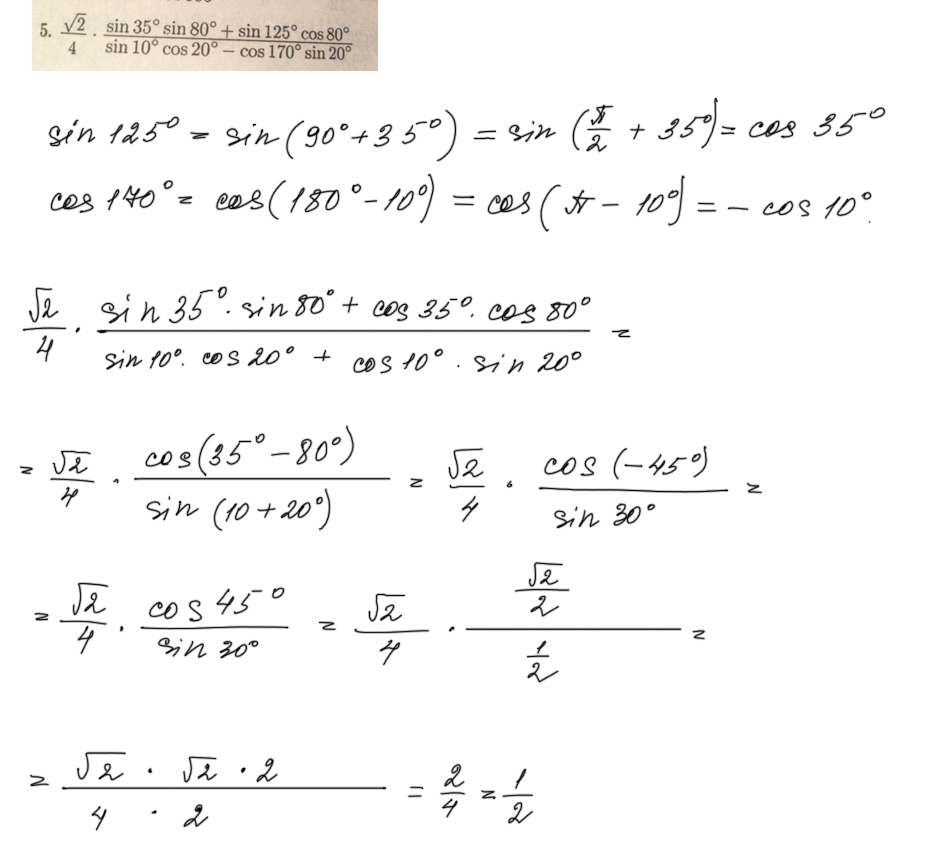 5. √2/4 · (sin 35° sin 80° + sin 125° cos 80°)/(sin 10° cos 20° – cos 170° sin 20°)
sin 125° = sin(90°+35°) = sin(π/2 + 35°) = cos 35°
cos 170° = cos(180°-10°) = cos(π - 10°) = - cos 10°.
√2/4 · (sin 35° · sin 80° + cos 35° · cos 80°)/(sin 10° · cos 20° + cos 10° · sin 20°) =
= √2/4 · cos(35° - 80°)/sin(10+20°) = √2/4 · cos(-45°)/sin 30° =
= √2/4 · cos 45°/sin 30° = √2/4 · (√2/2)/(1/2) =
= (√2 · √2 · 2)/(4 · 2) = 2/4 = 1/2